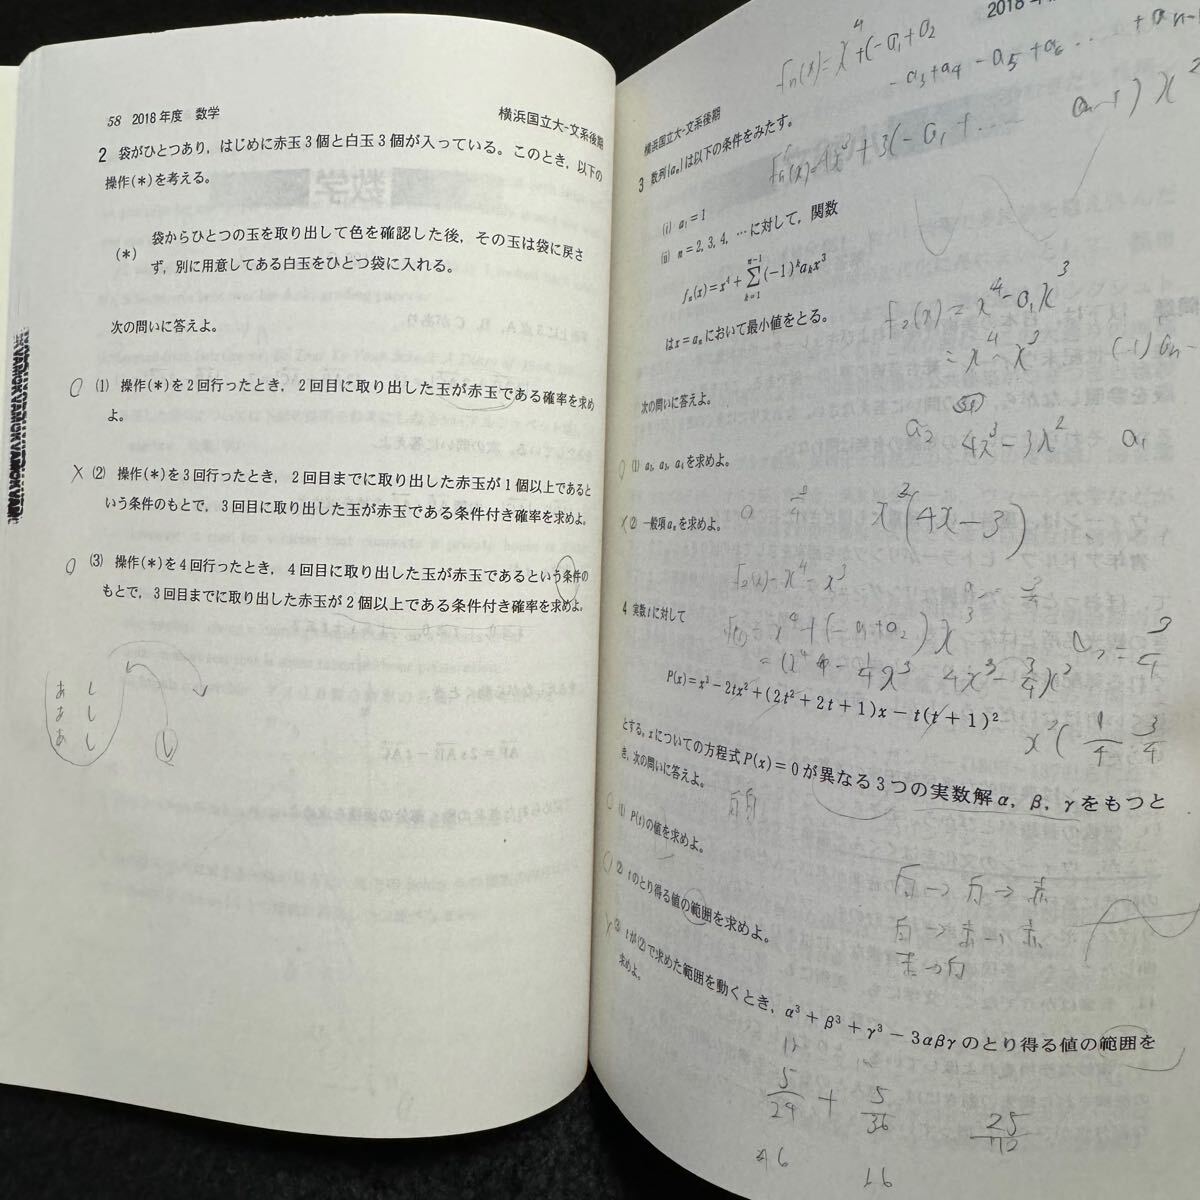 58 2018年度 数学
横浜国立大-文系後期
2 袋がひとつあり，はじめに赤玉3個と白玉3個が入っている。このとき，以下の
操作(*)を考える。
(*) 袋からひとつの玉を取り出して色を確認した後，その玉は袋に戻さ
ず，別に用意してある白玉をひとつ袋に入れる。
次の問いに答えよ。
(1) 操作(*)を2回行ったとき，2回目に取り出した玉が赤玉である確率を求め
よ。
(2) 操作(*)を3回行ったとき，2回目までに取り出した赤玉が1個以上であると
いう条件のもとで，3回目に取り出した玉が赤玉である条件付き確率を求めよ。
(3) 操作(*)を4回行ったとき，4回目に取り出した玉が赤玉であるという条件の
もとで，3回目までに取り出した赤玉が2個以上である条件付き確率を求めよ。
あ し
あ し
あ し
し
横浜国立大-文系後期
3 数列{aₙ}は以下の条件をみたす。
(i) a₁=1
(ii) n=2, 3, 4, …に対して，関数
fₙ(x)=x⁴+∑ₖ₌₁ⁿ⁻¹(-1)ᵏaₖx³
はx=aₙにおいて最小値をとる。
次の問いに答えよ。
(1) a₂, a₃, a₄を求めよ。
(2) 一般項aₙを求めよ。
f₂(x)=x⁴-a₁x³
=x⁴-x³
4x³-3x²
x²(4x-3)
4 実数tに対して
P(x)=x³-2tx²+(2t²+2t+1)x-t(t+1)²
とする。xについての方程式P(x)=0が異なる3つの実数解α, β, γをもつと
き，次の問いに答えよ。
(1) P(t)の値を求めよ。
(2) tのとり得る値の範囲を求めよ。
(3) tが(2)で求めた範囲を動くとき，α³+β³+γ³-3αβγのとり得る値の範囲を
求めよ。
白→白→赤
白→赤→赤
赤→白
5/24 + 5/36